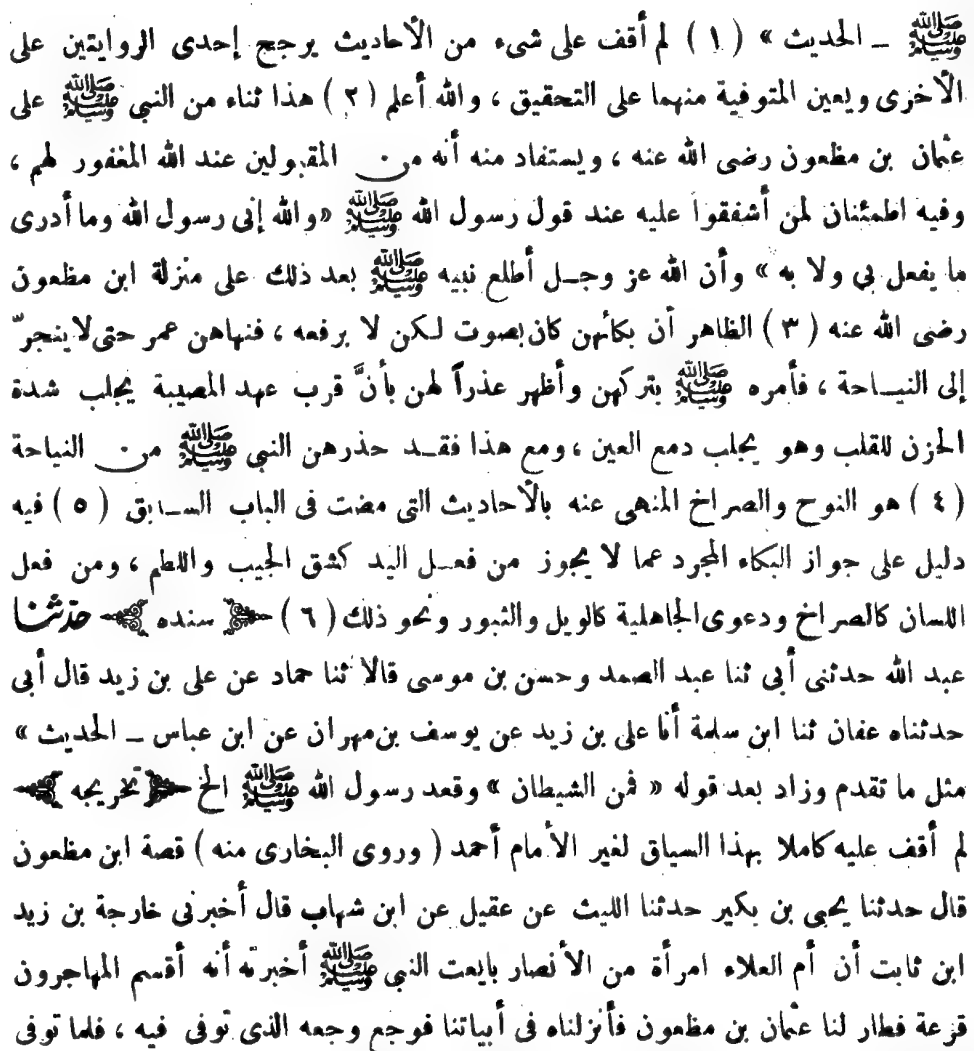 ﷺ ـ الحديث » (١) لم أقف على شىء من الأحاديث يرجح إحدى الروايتين على
الأخرى ويعين المتوفية منهما على التحقيق ، والله أعلم (٢) هذا ثناء من النبي ﷺ على
عثمان بن مظعون رضى الله عنه ، ويستفاد منه أنه من المقبولين عند الله المغفور لهم ،
وفيه اطمئنان لمن أشفقوا عليه عند قول رسول الله ﷺ «والله إنى رسول الله وما أدرى
ما يفعل بي ولا به » وأن الله عز وجـل أطلع نبيه ﷺ بعد ذلك على منزلة ابن مظعون
رضى الله عنه (٣) الظاهر أن بكائهن كان بصوت لـكن لا برفعه ، فنهاهن عمر حتى لا ينجرّ
إلى النيـاحة ، فأمره ﷺ بتركهن وأظهر عذراً لهن بأنَّ قرب عهد المصيبة يجلب شدة
الحزن للقلب وهو يجلب دمع العين ، ومع هذا فقـد حذرهن النبى ﷺ من النياحة
(٤) هو النوح والصراخ المنهى عنه بالأحاديث التى مضت فى الباب السـابق (٥) فيه
دليل على جواز البكاء المجرد عما لا يجوز من فعـل اليد كشق الجيب واللطم ، ومن فعل
اللسان كالصراخ ودعوى الجاهلية كالويل والثبور ونحو ذلك (٦) سنده حدّثنا
عبد الله حدثنى أبى ثنا عبد الصمد وحسن بن موسى قالا ثنا حماد عن على بن زيد قال أبى
حدثناه عفان ثنا ابن سلمة أنا على بن زيد عن يوسف بن مهران عن ابن عباس ـ الحديث »
مثل ما تقدم وزاد بعد قوله « فمن الشيطان » وقعد رسول الله ﷺ الخ تخريجه
لم أقف عليه كاملا بهذا السياق لغير الأمام أحمد (وروى البخارى منه) قصة ابن مظعون
قال حدثنا يحيى بن بكير حدثنا الليث عن عقيل عن ابن شهاب قال أخبرنى خارجة بن زيد
ابن ثابت أن أم العلاء امرأة من الأنصار بايعت النبى ﷺ أخبرته أنه أقسم المهاجرون
قرعة فطار لنا عثمان بن مظعون فأنزلناه فى أبياتنا فوجع وجعه الذى توفى فيه ، فلما توفى